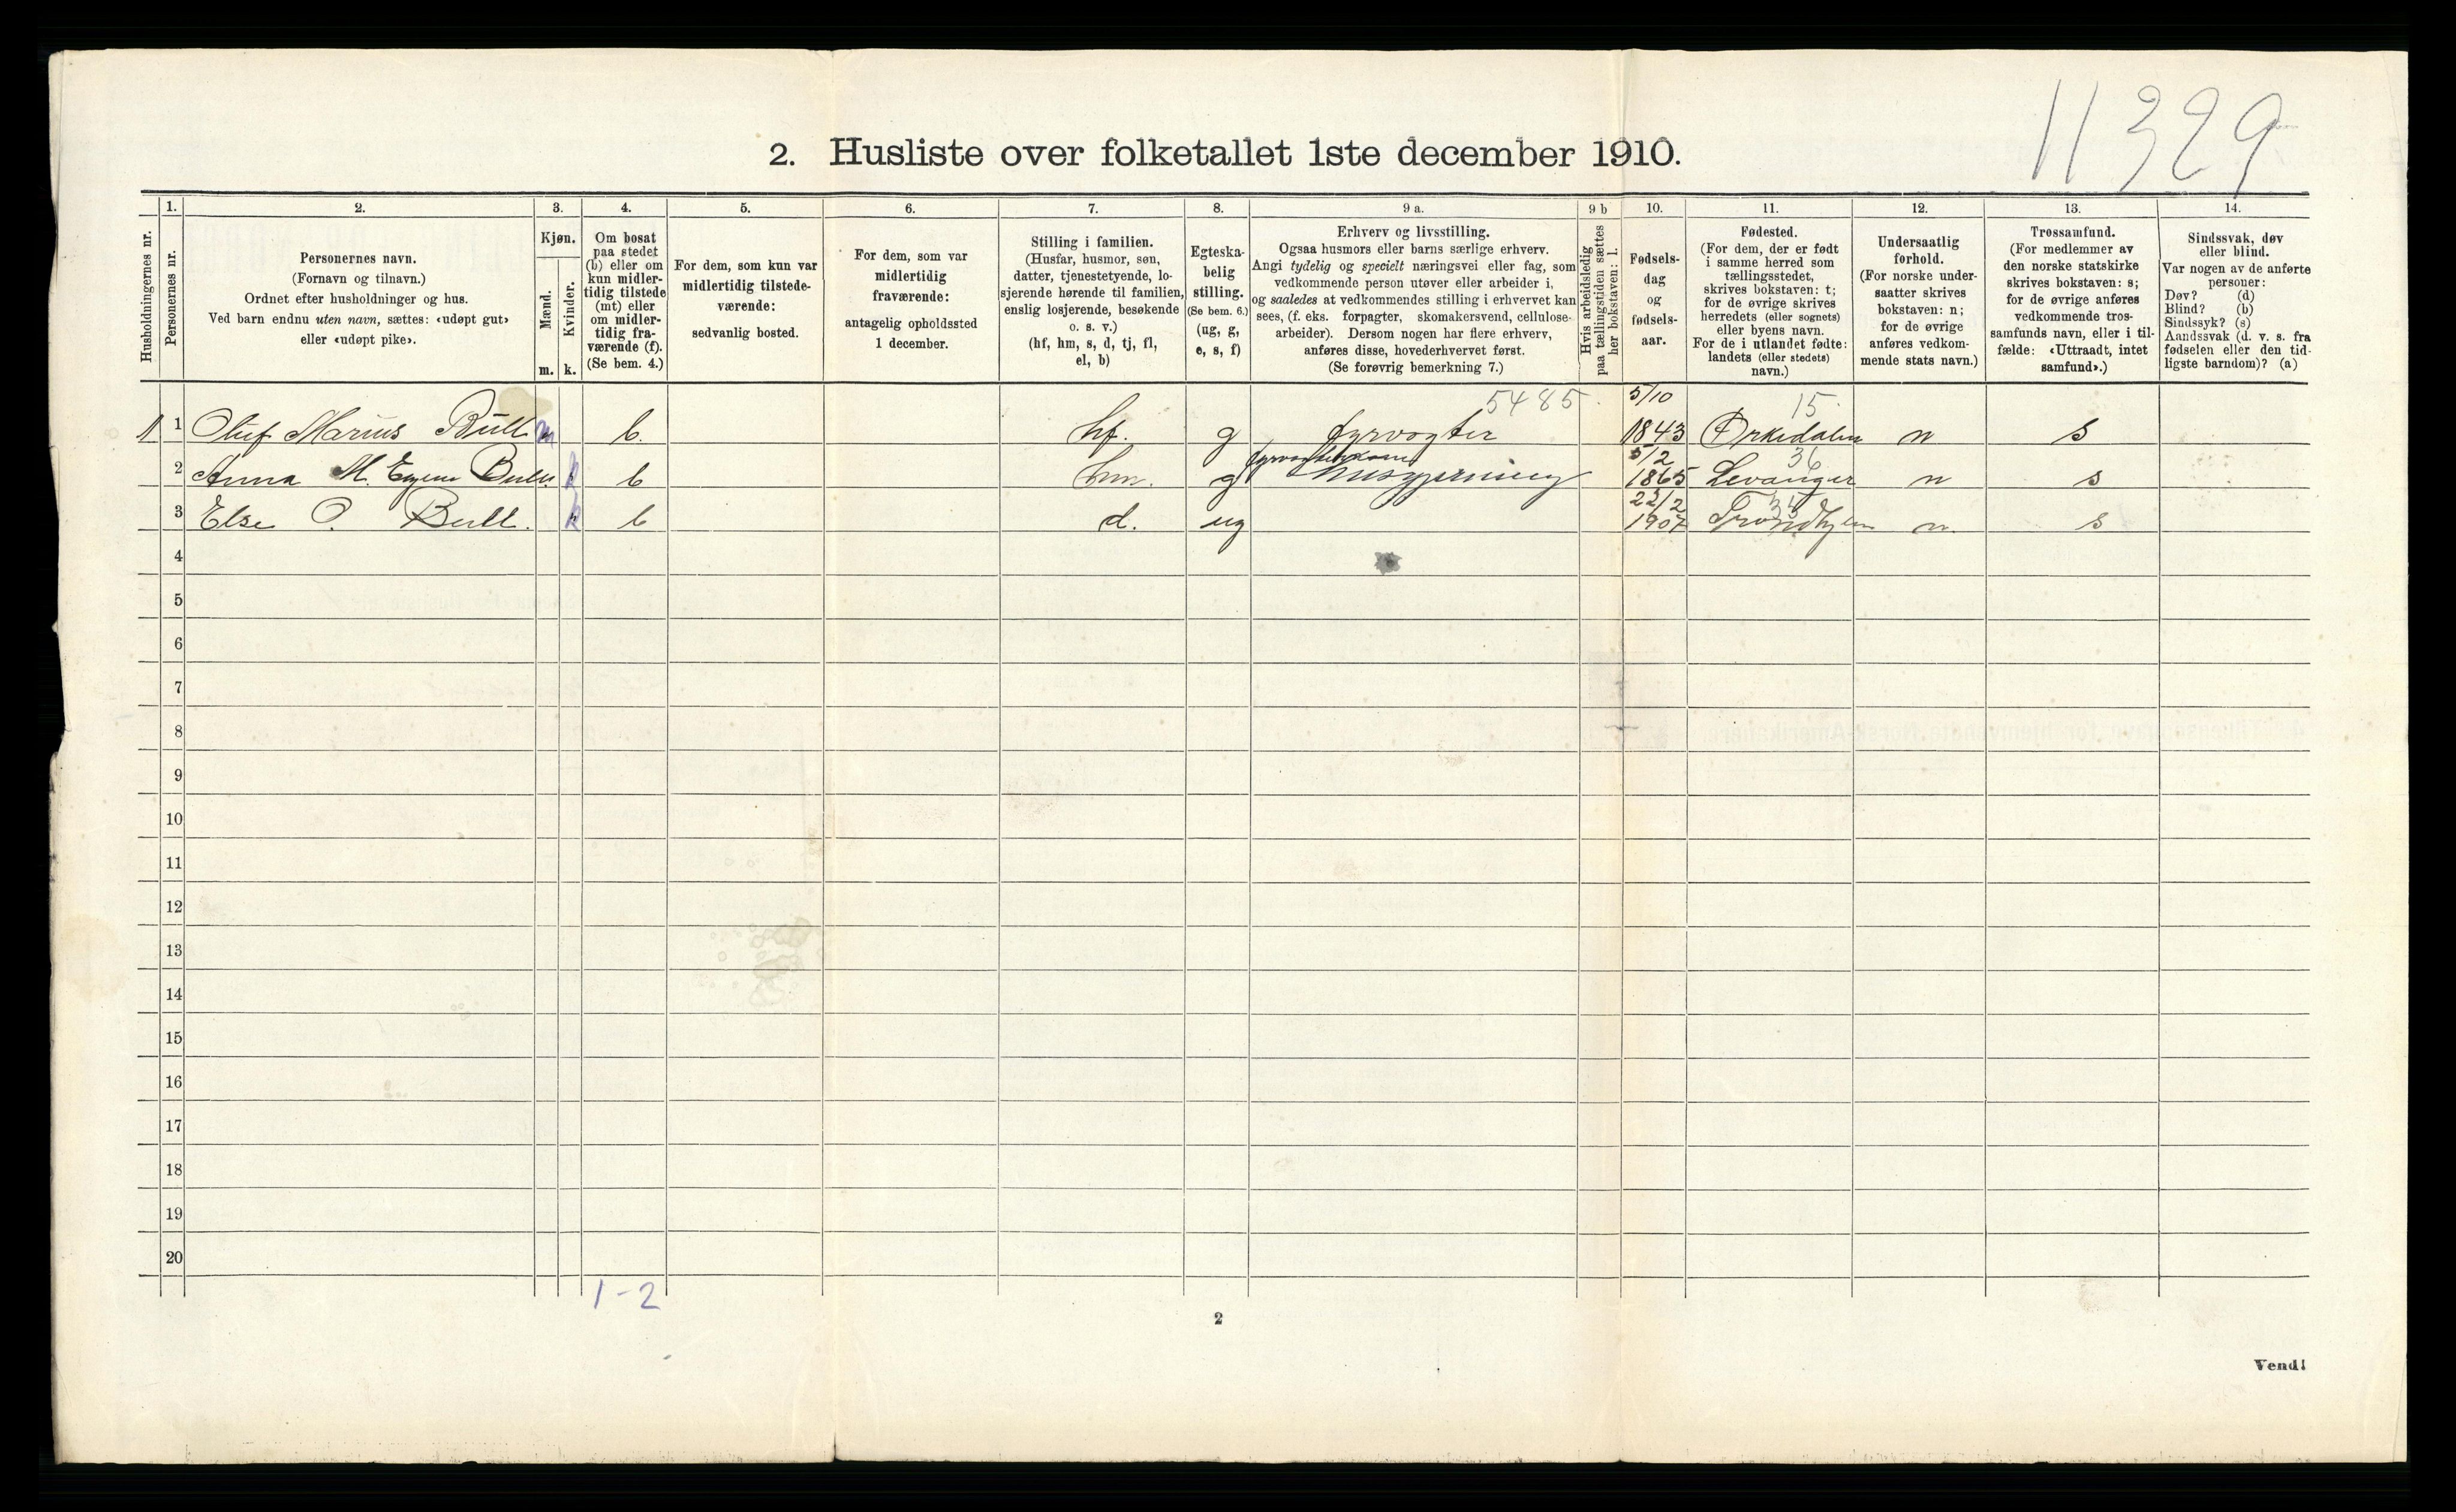 11329
2. Husliste over folketallet 1ste december 1910.
1. 2. 3. 4. 5. 6. 7. 8. 9 a. 9 b 10. 11. 12. 13. 14.
Husholdningernes nr.
Personernes nr.
Personernes navn.
(Fornavn og tilnavn.)
Ordnet efter husholdninger og hus.
Ved barn endnu uten navn, sættes: «udøpt gut»
eller «udøpt pike».
Kjøn.
Mænd.
Kvinder.
m. k.
Om bosat
paa stedet
(b) eller om
kun midler-
tidig tilstede
(mt) eller
om midler-
tidig fra-
værende (f).
(Se bem. 4.)
For dem, som kun var
midlertidig tilstede-
værende:
sedvanlig bosted.
For dem, som var
midlertidig
fraværende:
antagelig opholdssted
1 december.
Stilling i familien.
(Husfar, husmor, søn,
datter, tjenestetyende, lo-
sjerende hørende til familien,
enslig losjerende, besøkende
o. s. v.)
(hf, hm, s, d, tj, fl,
el, b)
Egteska-
belig
stilling.
(Se bem. 6.)
(ug, g,
e, s, f)
Erhverv og livsstilling.
Ogsaa husmors eller barns særlige erhverv.
Angi tydelig og specielt næringsvei eller fag, som
vedkommende person utøver eller arbeider i,
og saaledes at vedkommendes stilling i erhvervet kan
sees, (f. eks. forpagter, skomakersvend, cellulose-
arbeider). Dersom nogen har flere erhverv,
anføres disse, hovederhvervet først.
(Se forøvrig bemerkning 7.)
Hvis arbeidsledig
paa tællingstiden sættes
her bokstaven: l.
Fødsels-
dag
og
fødsels-
aar.
Fødested.
(For dem, der er født
i samme herred som
tællingsstedet,
skrives bokstaven: t;
for de øvrige skrives
herredets (eller sognets)
eller byens navn.
For de i utlandet fødte:
landets (eller stedets)
navn.)
Undersaatlig
forhold.
(For norske under-
saatter skrives
bokstaven: n;
for de øvrige
anføres vedkom-
mende stats navn.)
Trossamfund.
(For medlemmer av
den norske statskirke
skrives bokstaven: s;
for de øvrige anføres
vedkommende tros-
samfunds navn, eller i til-
fælde: «Uttraadt, intet
samfund».)
Sindssvak, døv
eller blind.
Var nogen av de anførte
personer:
Døv? (d)
Blind? (b)
Sindssyk? (s)
Aandssvak (d. v. s. fra
fødselen eller den tid-
ligste barndom)? (a)
5485 5/10 15
1 1 Oluf Marius Bull m b. hf. g fyrvogter 1843 Ørkedalen n s
5/2 36
2 Anna M. Bull k b hm. g husgjerning 1865 Levanger n s
22/2 35
3 Else P. Bull. k b d. ug 1907 Trondhjem n s
4
5
6
7
8
9
10
11
12
13
14
15
16
17
18
19
20
1-2
2
Vend!